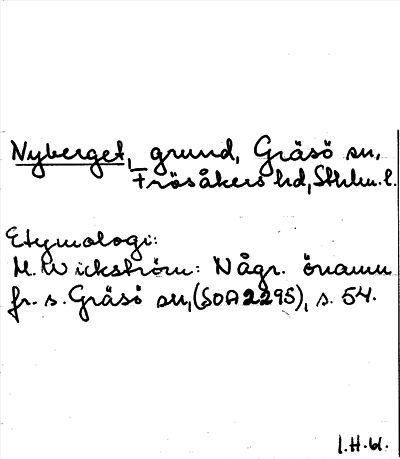 Nyberget, grund, Gräsö sn,
Frösåkers hd, Sthlm. l.
Etymologi:
M. Wickström: Någr. önamn
fr. s. Gräsö sn, (SOA 2295), s. 54.
I.H.-bl.